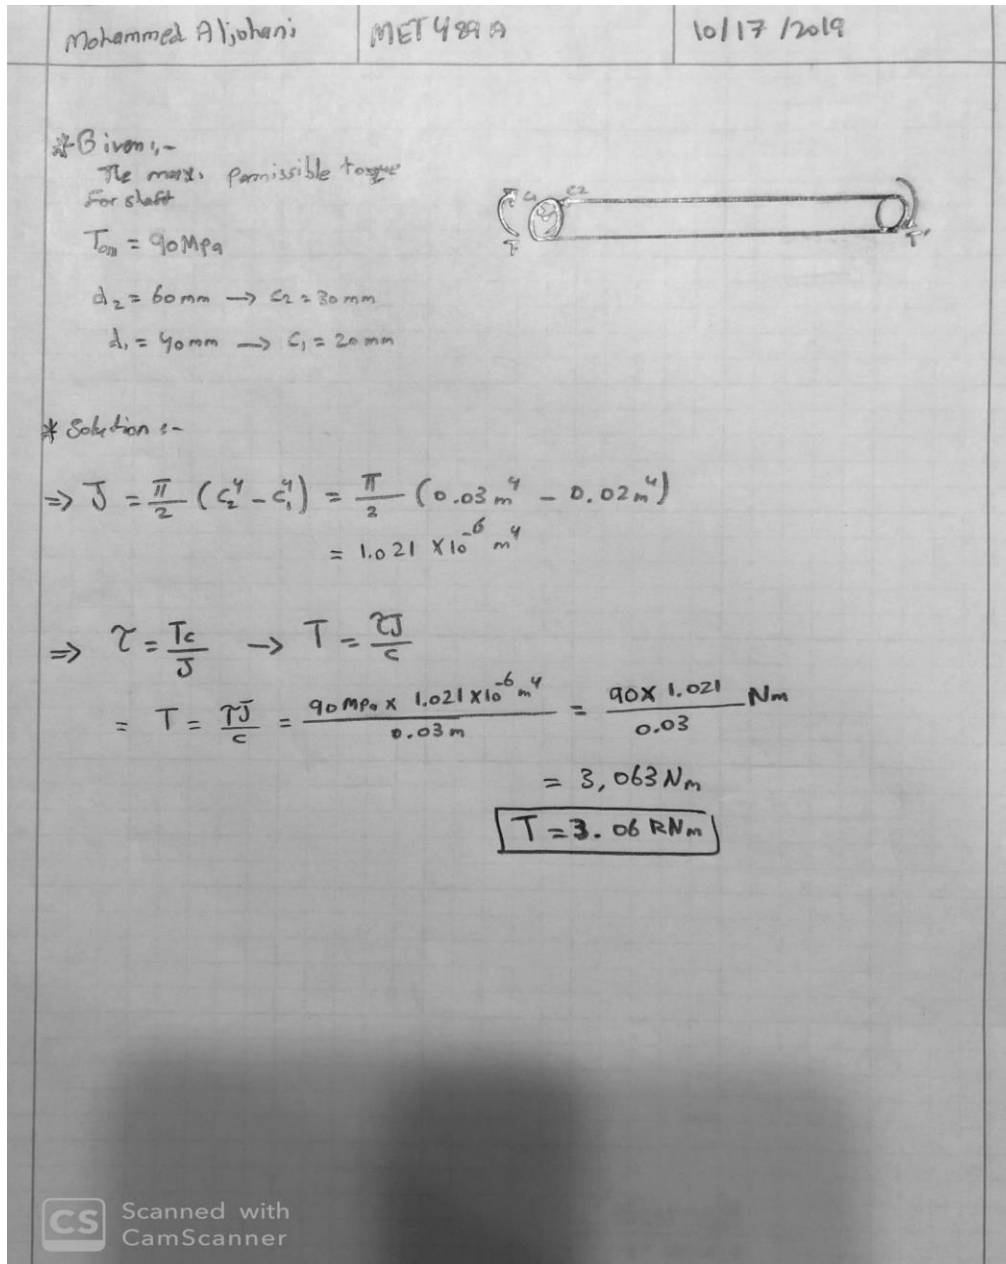 Mohammed Aljohani MET 489 A 10/17/2019
* Given:-
The max. permissible torque
For shaft
Tom = 90 Mpa
d₂ = 60 mm → c₂ = 30 mm
d₁ = 40 mm → c₁ = 20 mm
c₁ c₂
T T'
* Solution:-
⇒ J = π/2 (c₂⁴ - c₁⁴) = π/2 (0.03m⁴ - 0.02m⁴)
= 1.021 X10⁻⁶ m⁴
⇒ τ = Tc/J → T = τJ/c
= T = τJ/c = 90 MPa x 1.021 X10⁻⁶ m⁴/0.03 m = 90X 1.021/0.03 Nm
= 3,063 Nm
T = 3.06 RNm
CS Scanned with
CamScanner